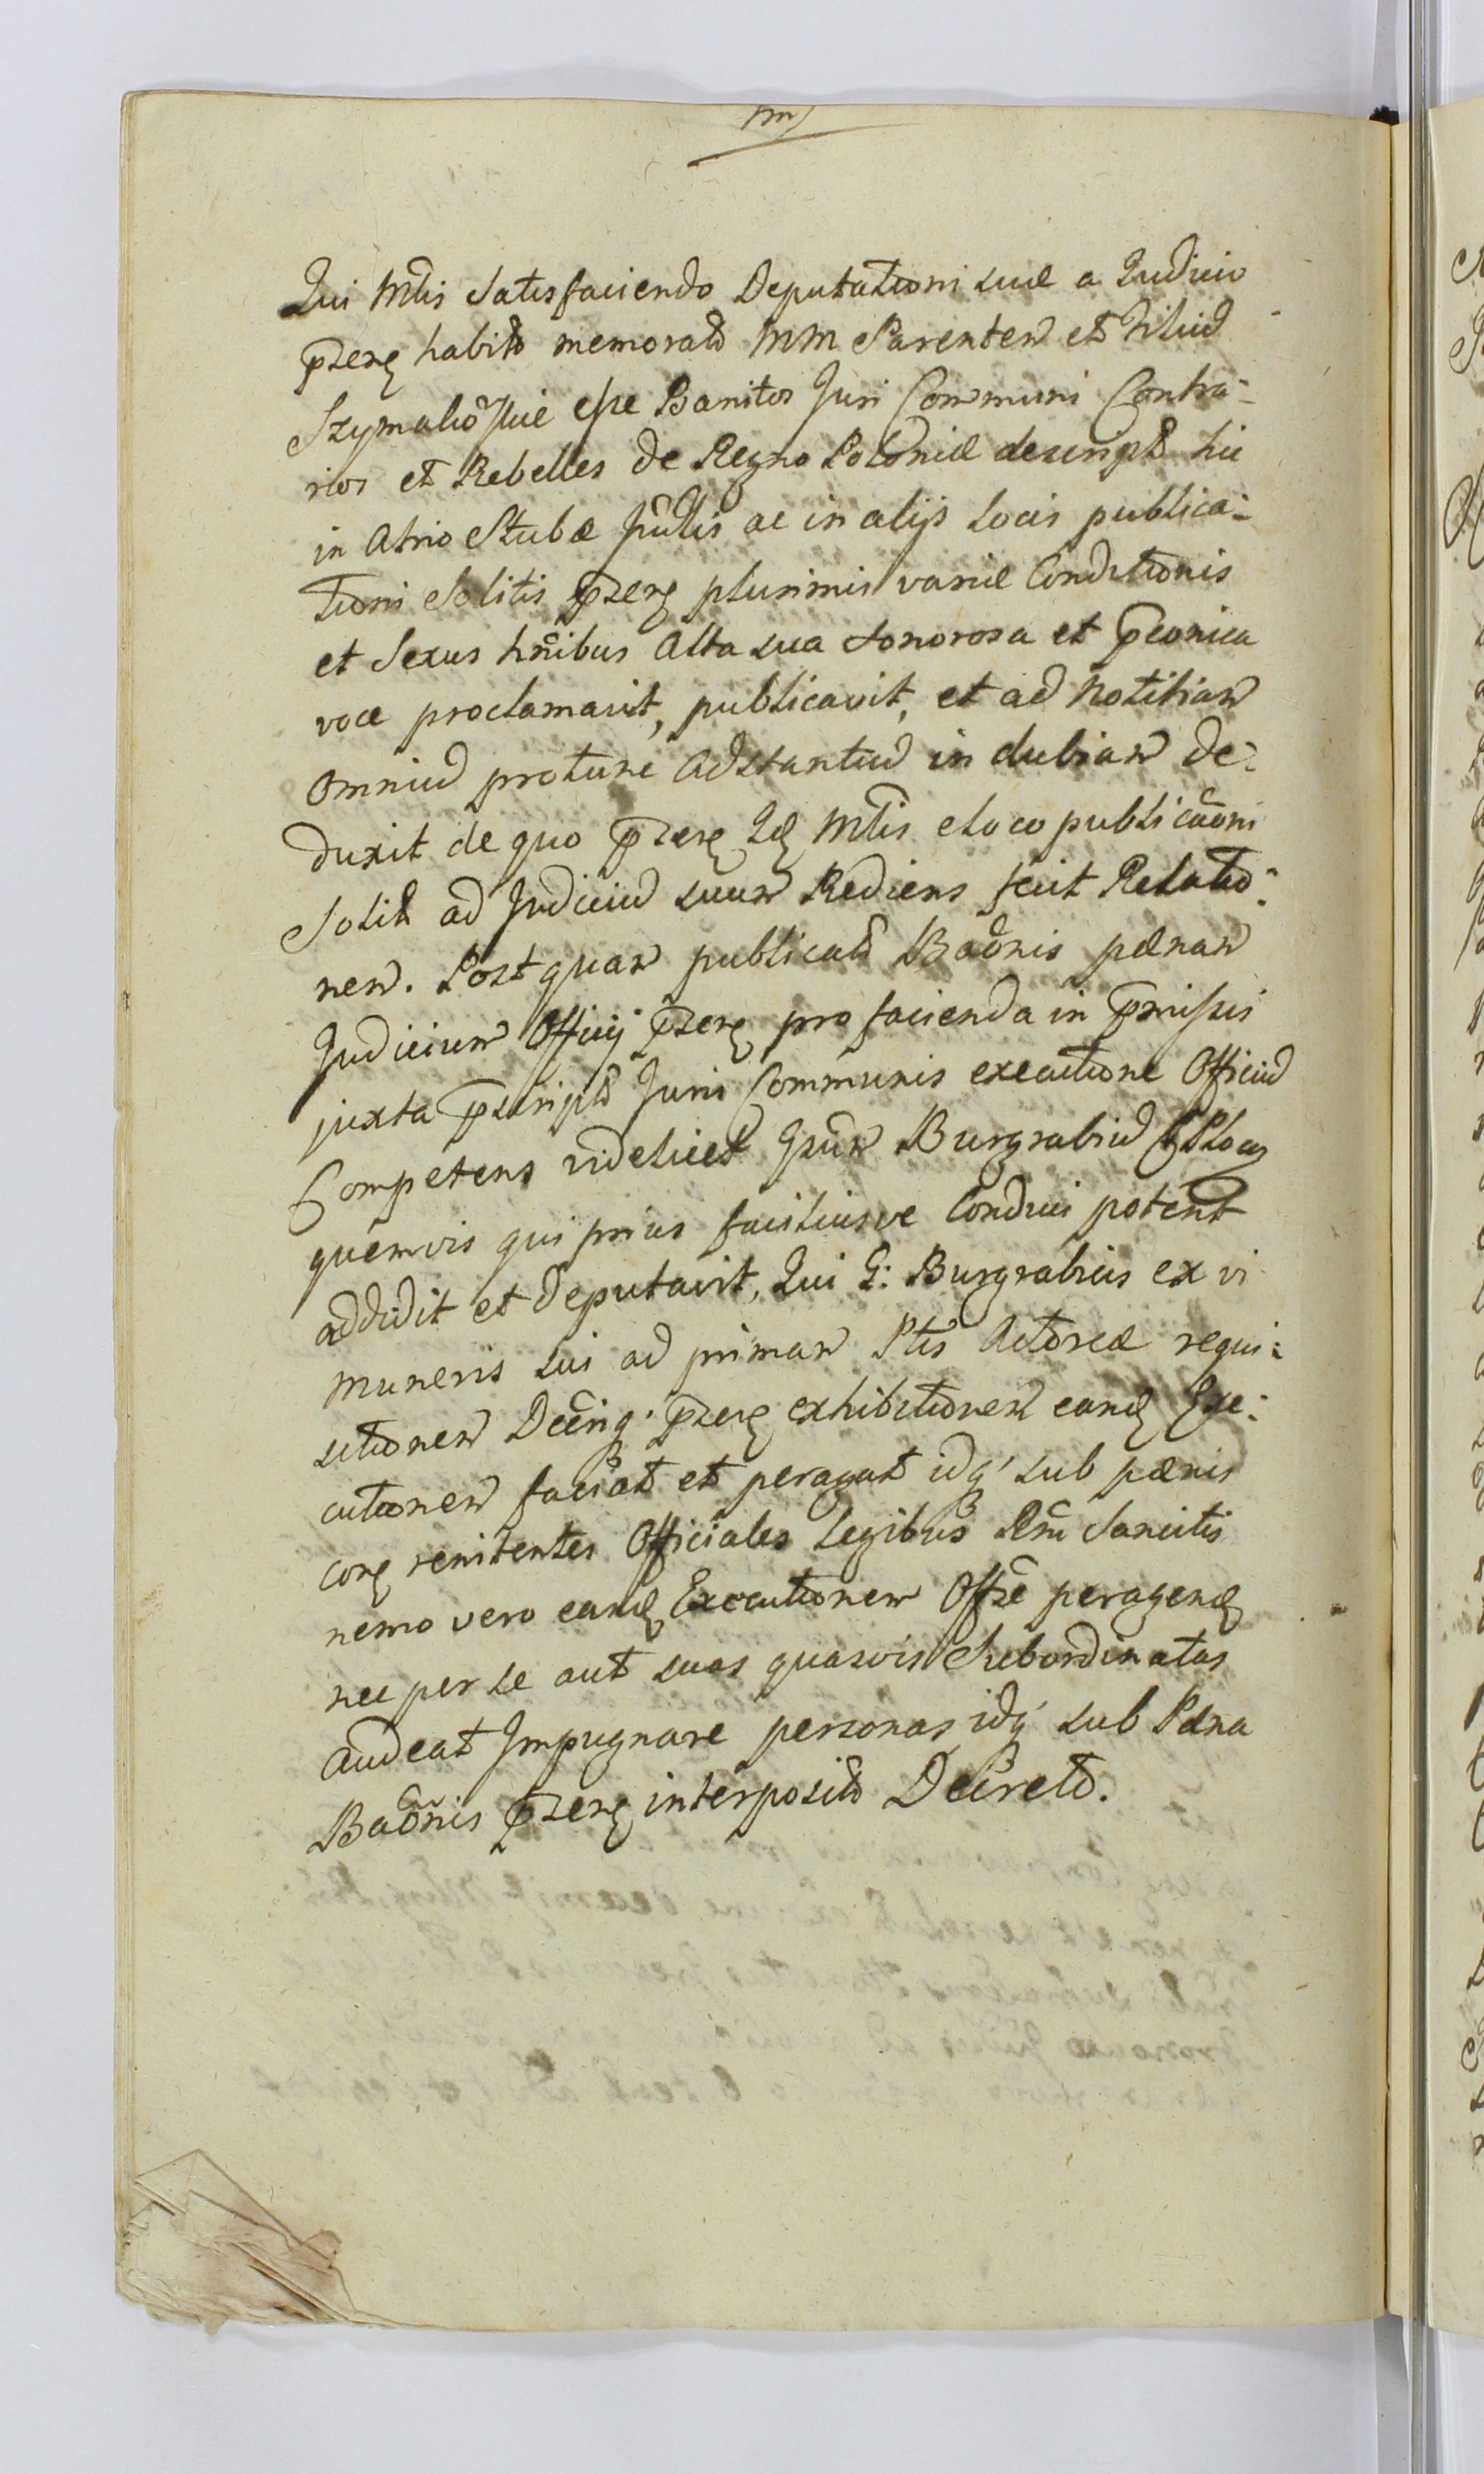 Qui Mtlis Satisfaciendo Deputationi suæ a Judicio
pzens habito memorato MM Parentem et Filiũ
Szymanõskie esse Banitos Juri Communi Contra-
rios et Rebelles de Regno Poloniæ descript hic
in Atrio Stubæ Judlis ac in alijs Locis publica-
tioni Solitis pzens plurimis variæ Conditionis
et Sexus hñibus Alta sua sonorosa et pconica
voce proclamavit, publicavit, et ad Notitiam
omniũ protunc Adstantiũ in dubiam de-
duxit de quo pzens Id Mtlis e Loco publicãoni
Solit ad Judiciũ suum Rediens fecit Relatio-
nem. Postquam publicatã Baõnis pænam
Judicium Officij pzens pro facienda in pmissis
juxta pscript Juris Communis executione Officiũ
Competens videlicet Gsum Burgrabiũ
quemvis qui prius faciliusve Conduci poterit
addidit et deputavit, Qui G: Burgrabius ex vi
muneris sui ad primam Ptis Actoreæ requi-
sitionem Decriq pzens exhibitionem eand Exe-
cutionem faciat et peragat idq sub pænis
conc renitentes Officiales Legibus Rni Sancitis
nemo vero eand Executionem Offse peragend
nec per se aut suas quasvis Subordinatas
Audeat Impugnare personas idq sub Pæna
Baõnis pzens interposito Decreto.